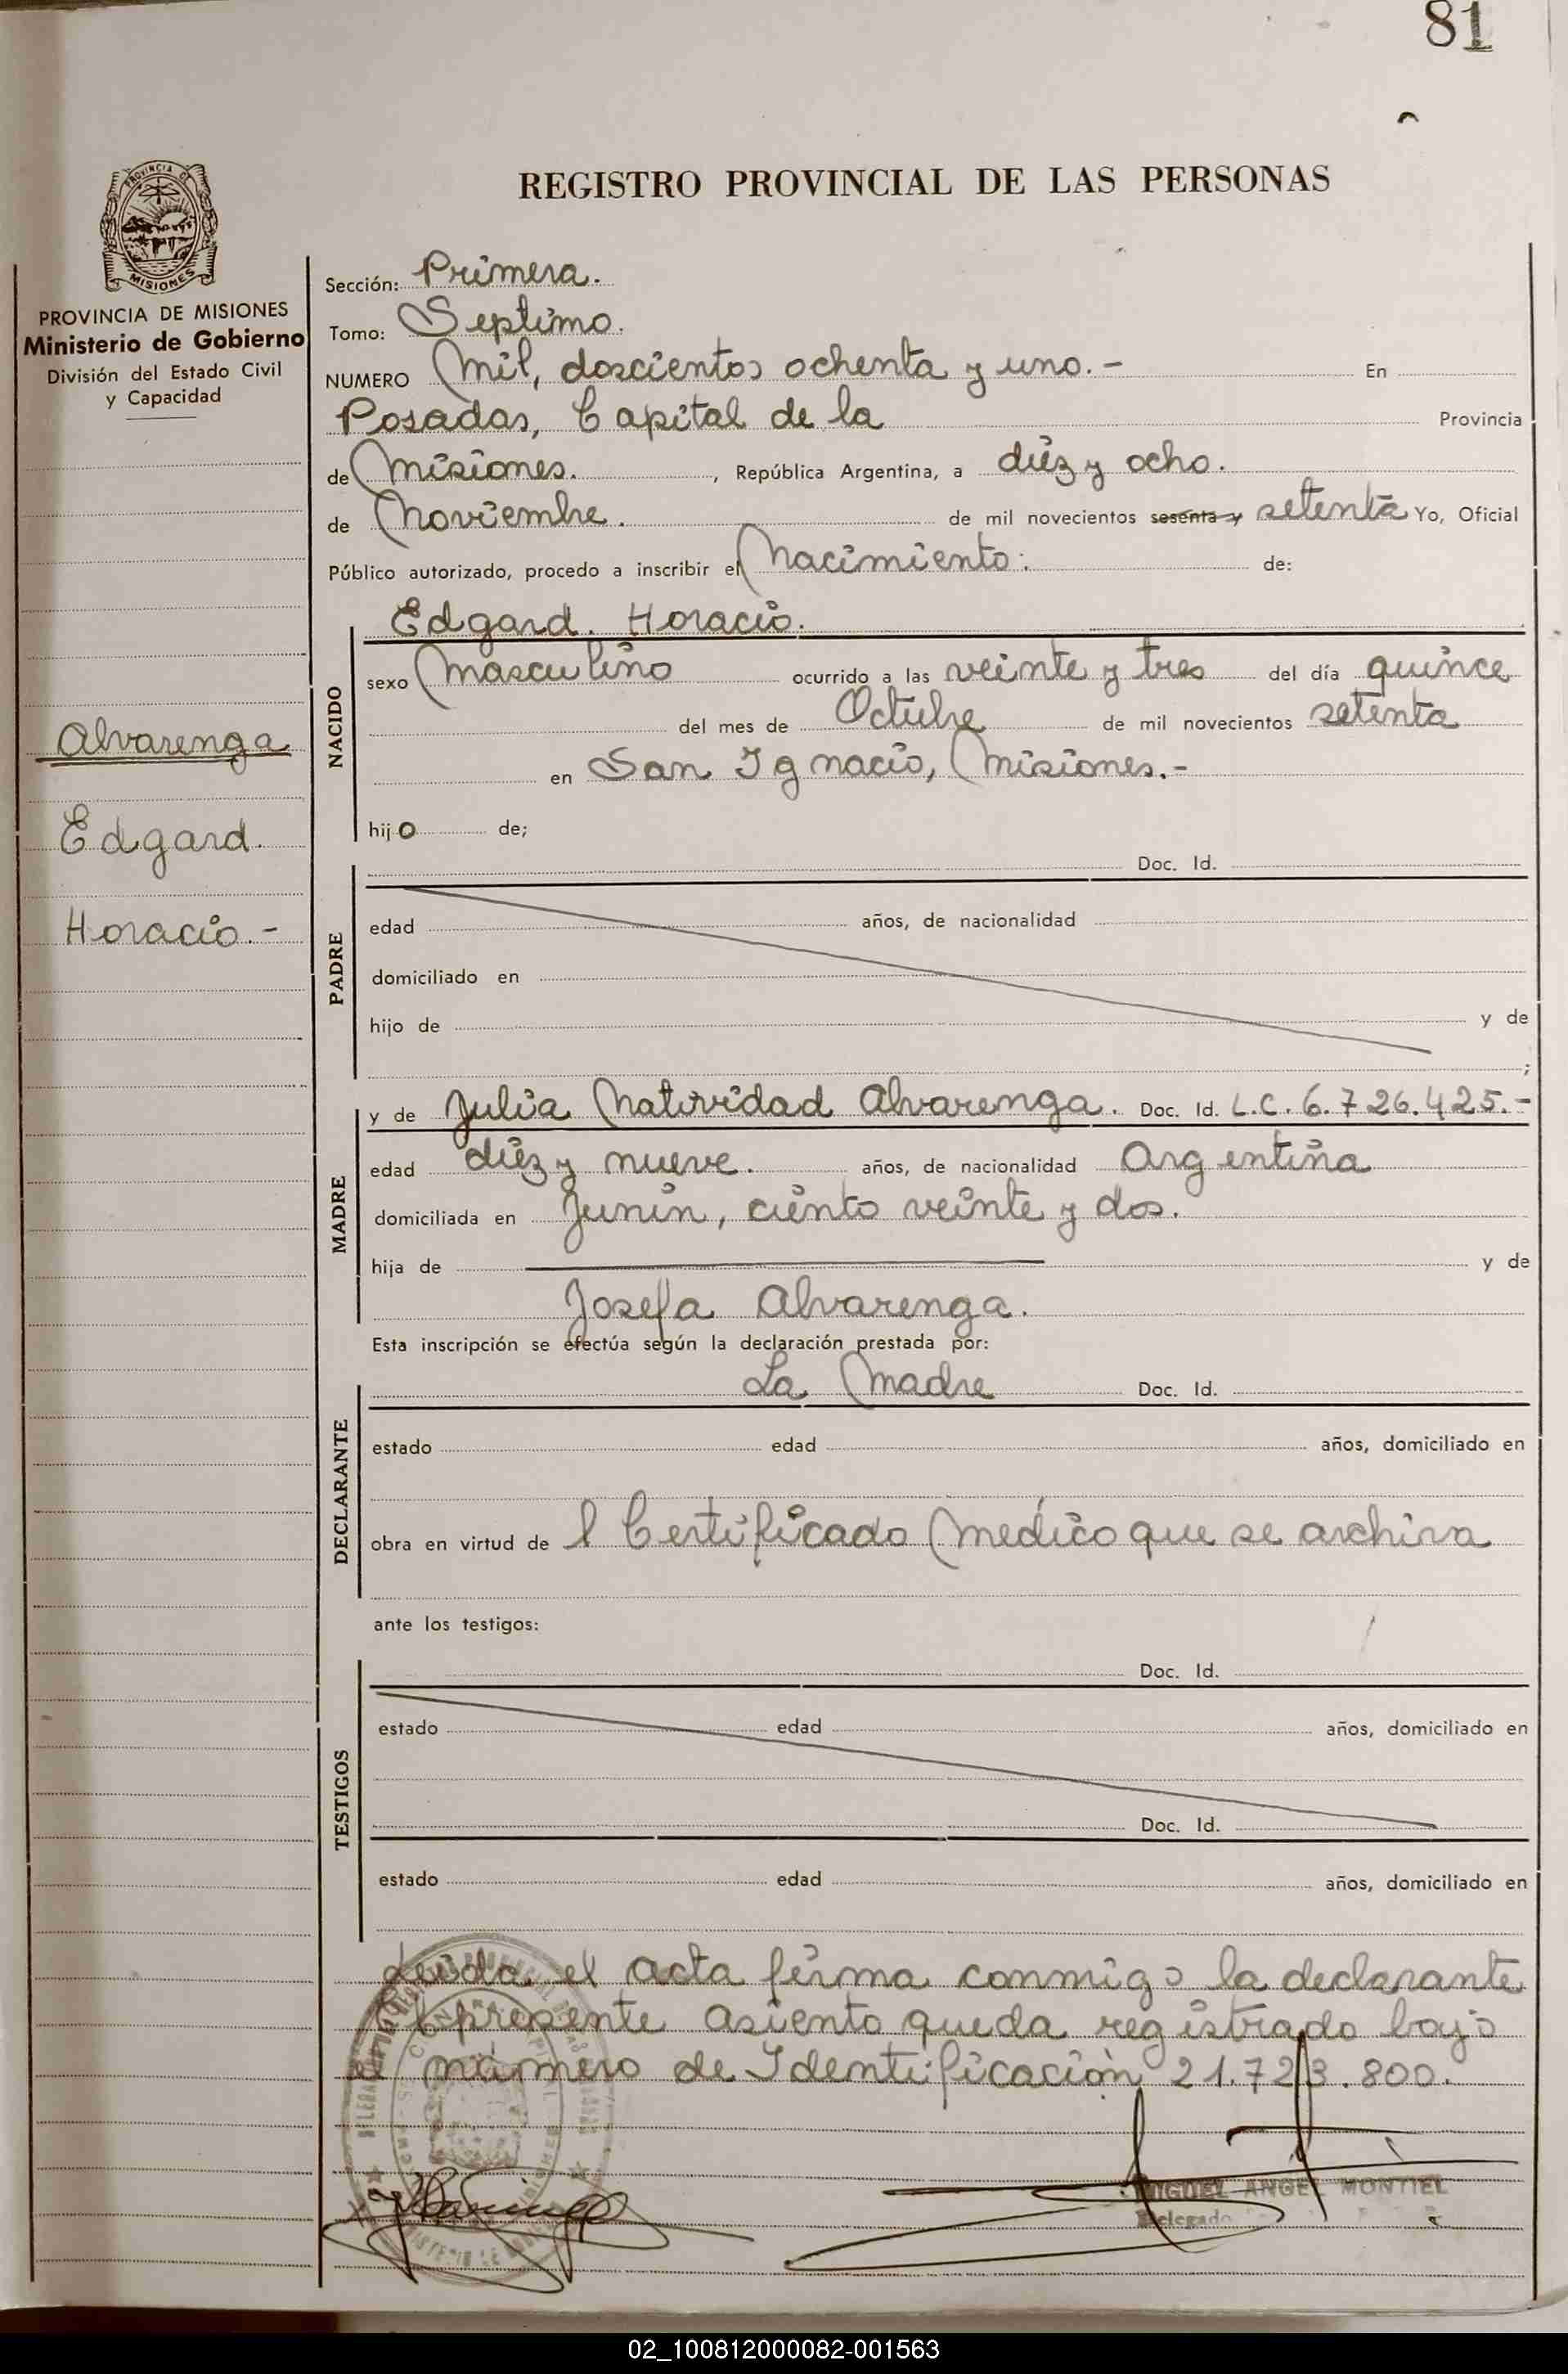 81
PROVINCIA DE
MISIONES
PROVINCIA DE MISIONES
Ministerio de Gobierno
División del Estado Civil
y Capacidad
Alvarenga
Edgard.
Horacio.-
REGISTRO PROVINCIAL DE LAS PERSONAS
Sección: Primera.
Tomo: Septimo.
NUMERO Mil, doscientos ochenta y uno.- En
Posadas, Capital de la Provincia
de Misiones. , República Argentina, a diéz y ocho.
de Noviembre. de mil novecientos sesenta y setenta Yo, Oficial
Público autorizado, procedo a inscribir el Nacimiento: de:
Edgard. Horacio.
NACIDO
sexo Masculino ocurrido a las veinte y tres del día quince
del mes de Octubre de mil novecientos setenta
en San Ignacio, Misiones.-
hijo de;
PADRE
Doc. Id.
edad años, de nacionalidad
domiciliado en
hijo de y de
;
MADRE
y de Julia Natividad Alvarenga. Doc. Id. L.C. 6.726.425.-
edad diéz y nueve. años, de nacionalidad Argentina
domiciliada en Junin, ciento veinte y dos.
hija de y de
Josefa Alvarenga.
Esta inscripción se efectúa según la declaración prestada por:
DECLARANTE
La Madre Doc. Id.
estado edad años, domiciliado en
obra en virtud de l Certificado Médico que se archiva
ante los testigos:
TESTIGOS
Doc. Id.
estado edad años, domiciliado en
Doc. Id.
estado edad años, domiciliado en
Leída el acta firma conmigo la declarante
El presente asiento queda registrado bajo
el número de Identificación 21.723.800.
MIGUEL ANGEL MONTIEL
Delegado
02_100812000082-001563